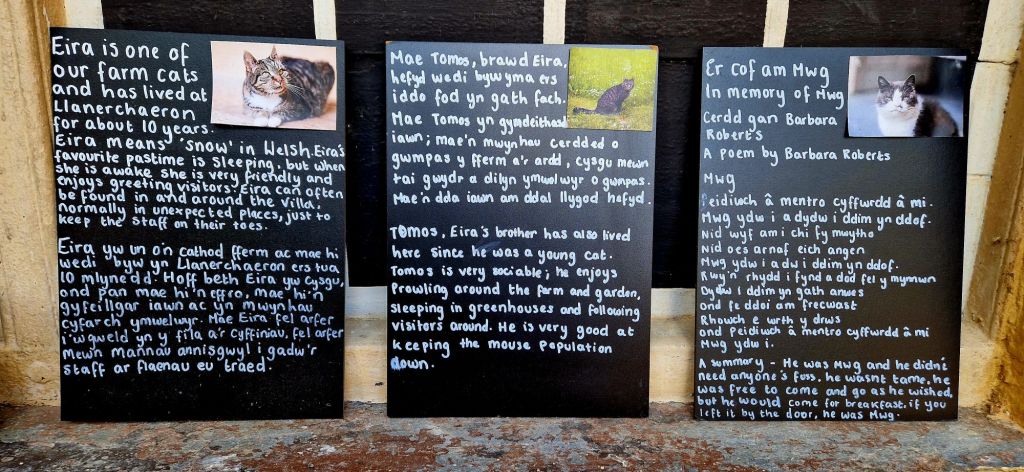 Eira is one of
our farm cats
and has lived at
Llanerchaeron
for about 10 years.
Eira means 'snow' in Welsh. Eira's
favourite pastime is sleeping, but when
she is awake she is very friendly and
enjoys greeting visitors. Eira can often
be found in and around the villa;
normally in unexpected places, just to
keep the staff on their toes.
Eira yw un o'n cathod fferm ac mae hi
wedi byw yn Llanerchaeron ers tua
10 mlynedd. Hoff beth Eira yw cysgu,
ond pan mae hi'n effro, mae hi'n
gyfeillgar iawn ac yn mwynhau
cyfarch ymwelwyr. Mae Eira fel arfer
i'w gweld yn y fila a'r cyffiniau, fel arfer
mewn mannau annisgwyl i gadw'r
staff ar flaenau eu traed.
Mae Tomos, brawd Eira,
hefyd wedi byw yma ers
iddo fod yn gath fach.
Mae Tomos yn gymdeithasol
iawn; mae'n mwynhau cerdded o
gwmpas y fferm a'r ardd, cysgu mewn
tai gwydr a dilyn ymwelwyr o gwmpas.
Mae'n dda iawn am ddal llygod hefyd.
Tomos, Eira's brother has also lived
here since he was a young cat.
Tomos is very sociable; he enjoys
prowling around the farm and garden,
sleeping in greenhouses and following
visitors around. He is very good at
keeping the mouse population
down.
Er cof am Mwg
In memory of Mwg
Cerdd gan Barbara
Roberts
A poem by Barbara Roberts
Mwg
Peidiwch â mentro cyffwrdd â mi.
Mwg ydw i a dydw i ddim yn ddof.
Nid wyf am i chi fy mwytho
Nid oes arnaf eich angen
Mwg ydw i adw i ddim yn ddof.
Rwy'n rhydd i fynd a dod fel y mynnwn
Dydw i ddim yn gath anwes
ond fe ddoi am frecwast
Rhowch e wrth y drws
ond peidiwch â mentro cyffwrdd â mi
Mwg ydw i.
A summary - He was Mwg and he didn't
need anyone's fuss. he wasnt tame, he
was free to come and go as he wished,
but he would come for breakfast, if you
left it by the door, he was Mwg.